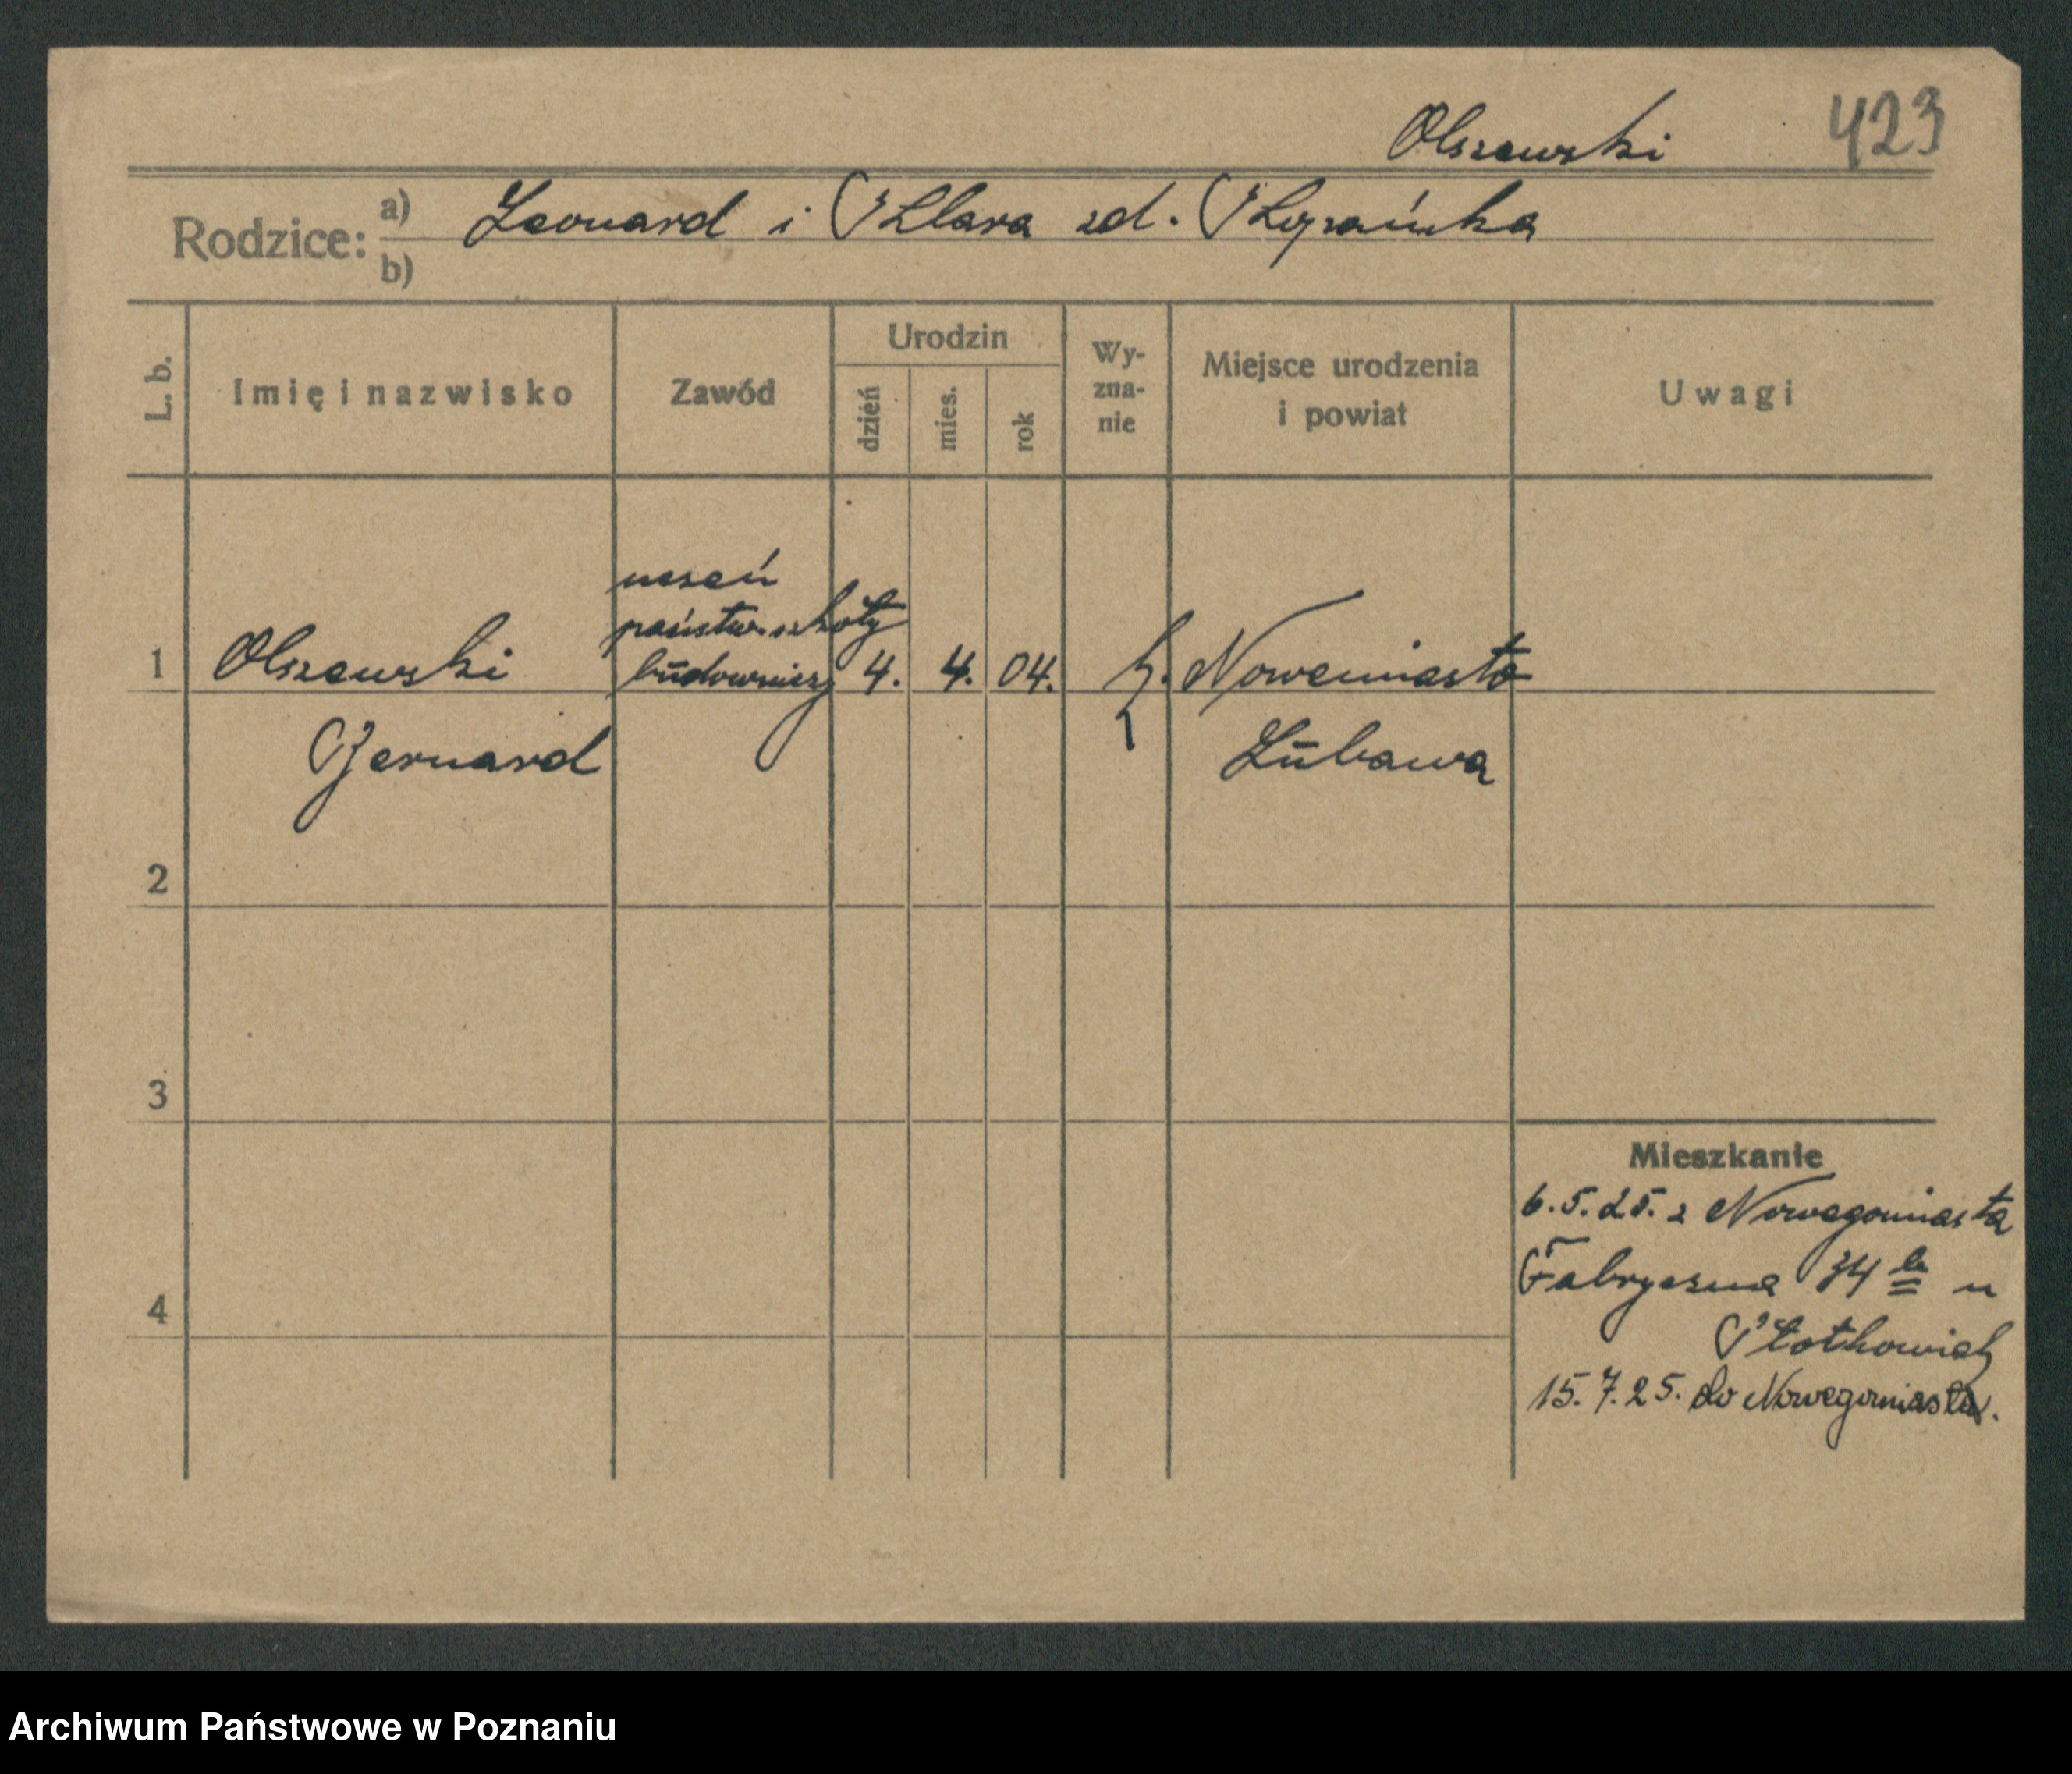 Olszewski 423
Rodzice: a) Leonard i Klara zd.
b)
L. b. Imię i nazwisko Zawód Urodzin dzień mies. rok Wy-zna-nie Miejsce urodzenia i powiat Uwagi
uczeń
państw. szkoły
1 Olszewski budowniczy 4. 4. 04. k. Nowemiasto
Bernard Lubawa
2
3
Mieszkanie
6.5.25. z Nowegomiasta
4 Fabryczna 34 u
15.7.25. do Nowegomiasta.
Archiwum Państwowe w Poznaniu